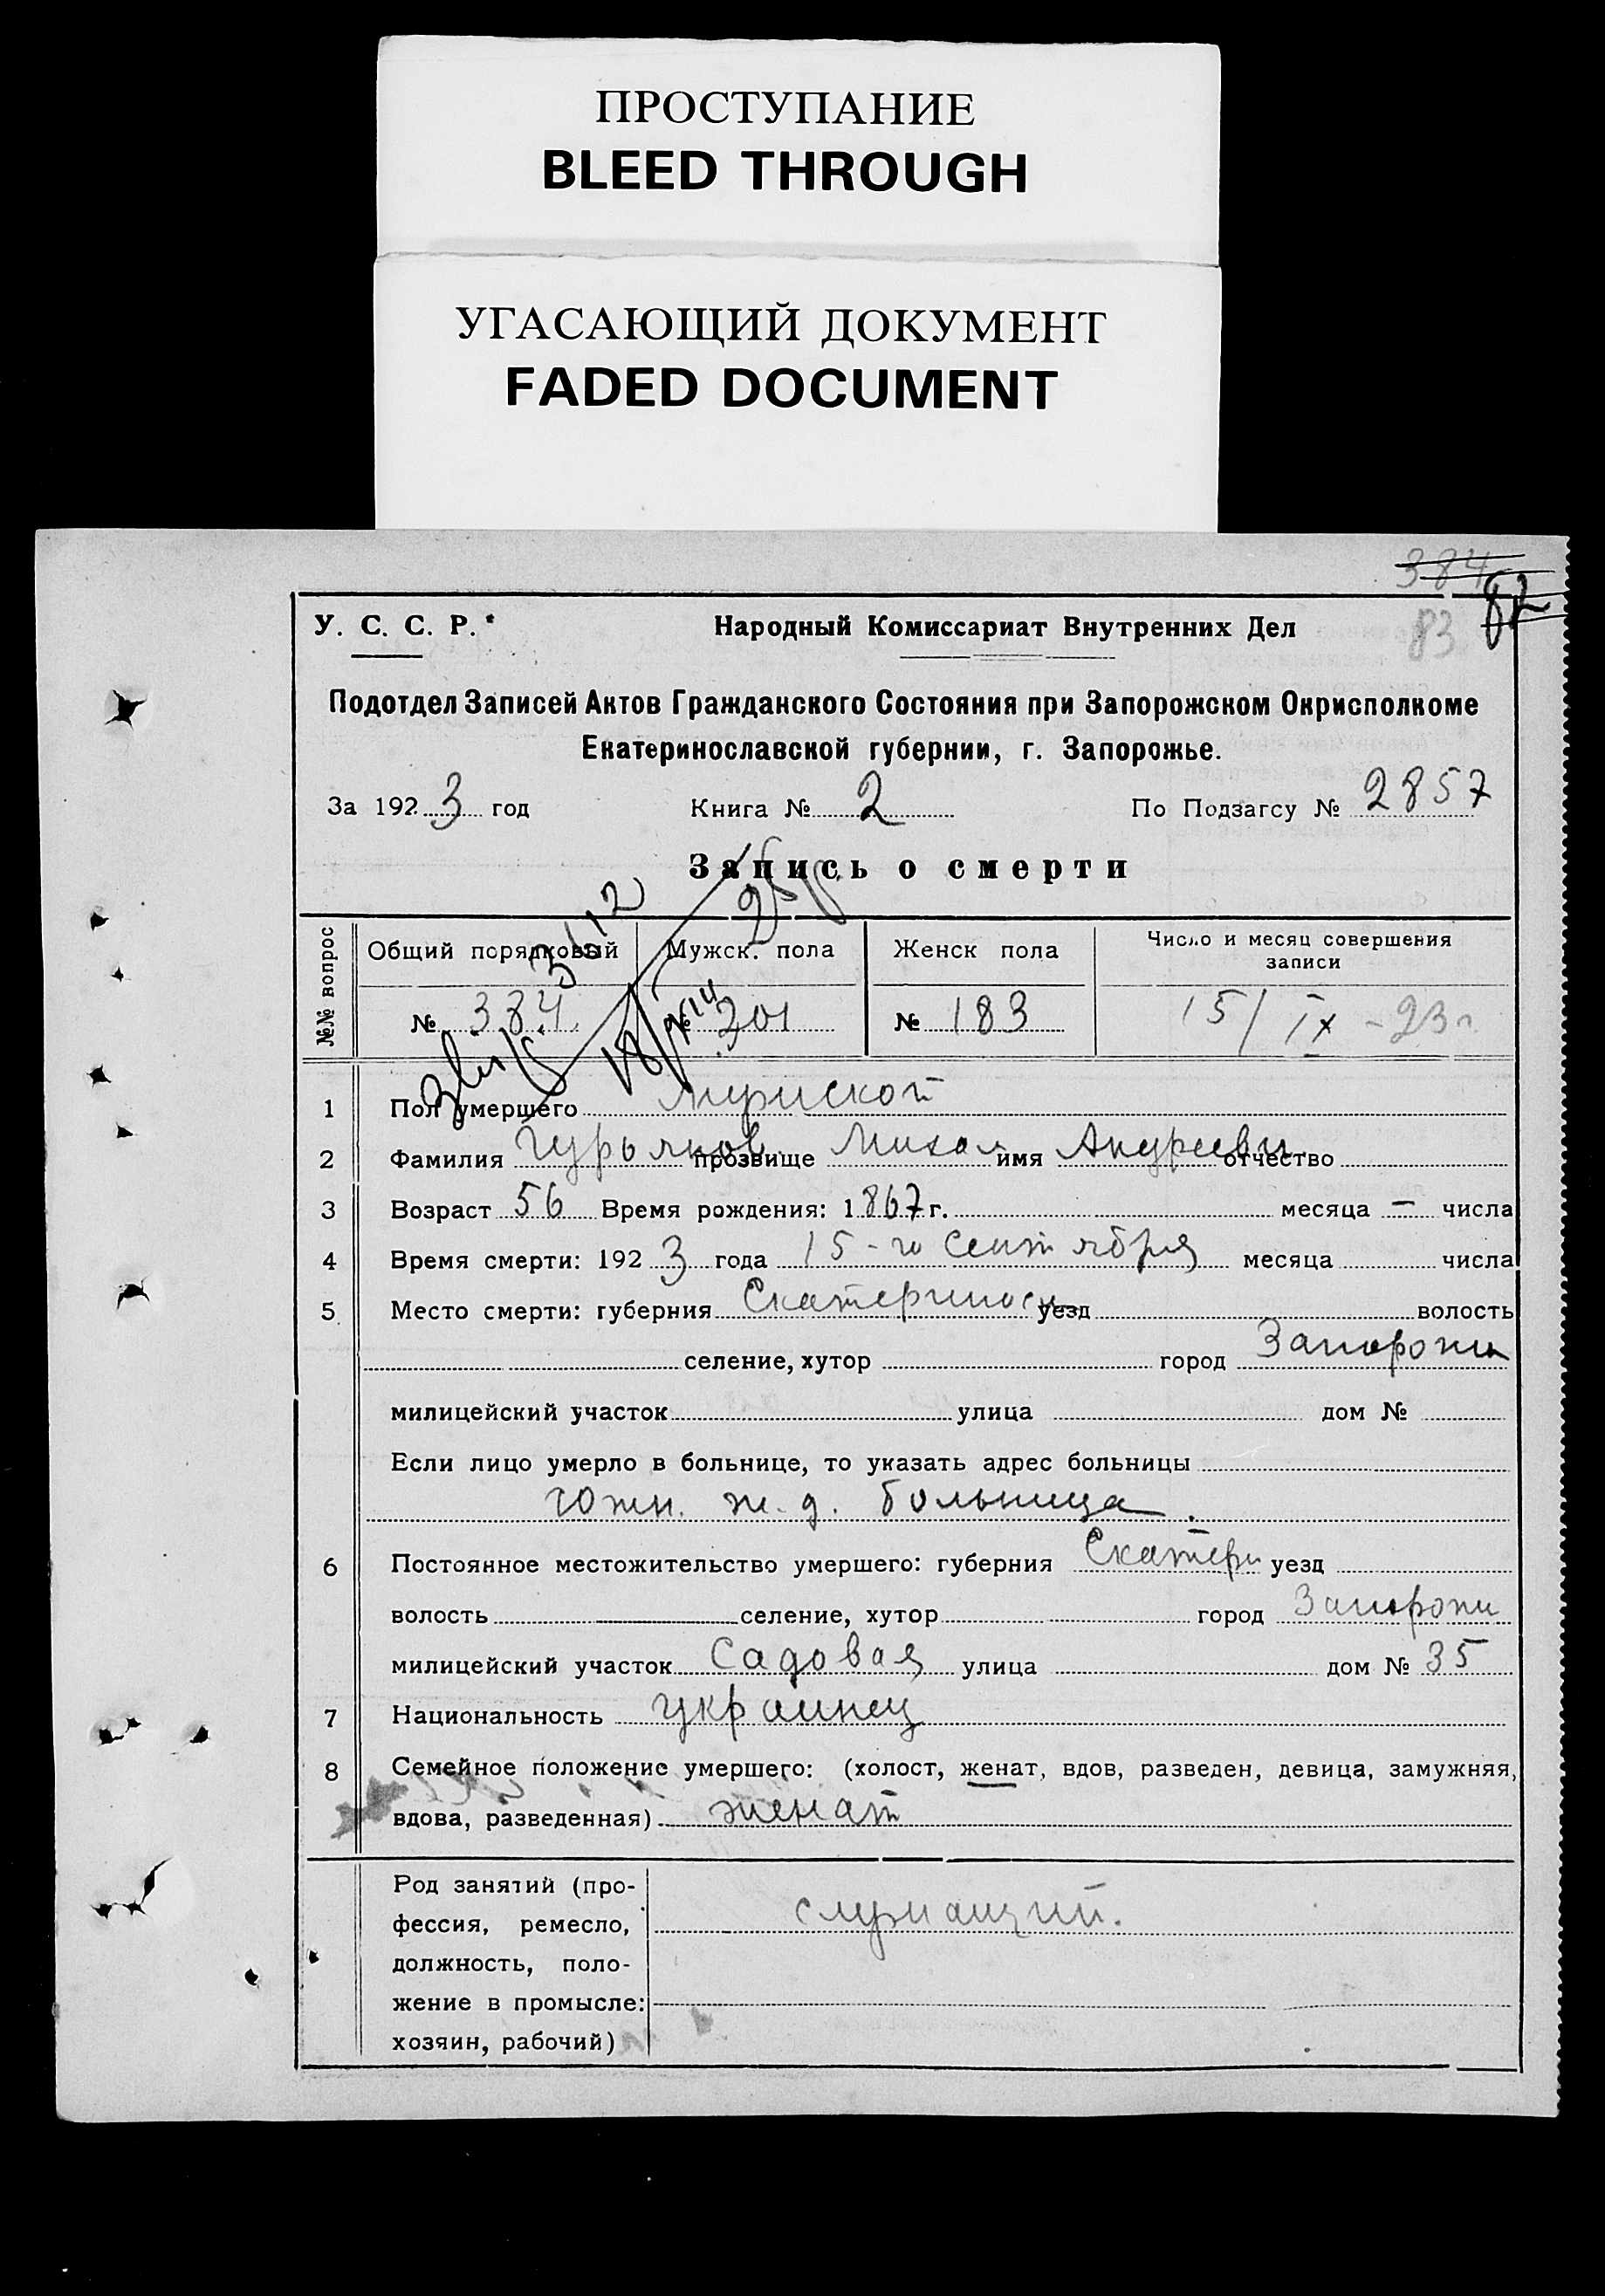 ПРОСТУПАНИЕ
BLEED THROUGH
УГАСАЮЩИЙ ДОКУМЕНТ
FADED DOCUMENT
384
82
83
У. С. С. Р.
Народный Комиссариат Внутренних Дел
Подотдел Записей Актов Гражданского Состояния при Запорожском Окрисполкоме
Екатеринославской губернии, г. Запорожье.
За 1923 год Книга № 2 По Подзагсу № 2857
Запись о смерти
№№ вопрос Общий порядковый Мужск. пола Женск пола Число и месяц совершения
записи
№ 384 № 201 № 183 15/IX-23г
1 Пол умершего мужской
2 Фамилия Гурьянов прозвище Михал имя Андреевич отчество
3 Возраст 56 Время рождения: 1867 г. месяца — числа
4 Время смерти: 1923 года 15-го Сентября месяца числа
5 Место смерти: губерния Екатеринос уезд волость
селение, хутор город Запорожи
милицейский участок улица дом №
Если лицо умерло в больнице, то указать адрес больницы
Южн. ж. д. больница.
6 Постоянное местожительство умершего: губерния Екатери уезд
волость селение, хутор город Запорожи
милицейский участок Садовая улица дом № 35
7 Национальность украинец
8 Семейное положение умершего: (холост, женат, вдов, разведен, девица, замужняя,
вдова, разведенная) женат
Род занятий (про-
фессия, ремесло, служащий.
должность, поло-
жение в промысле:
хозяин, рабочий)